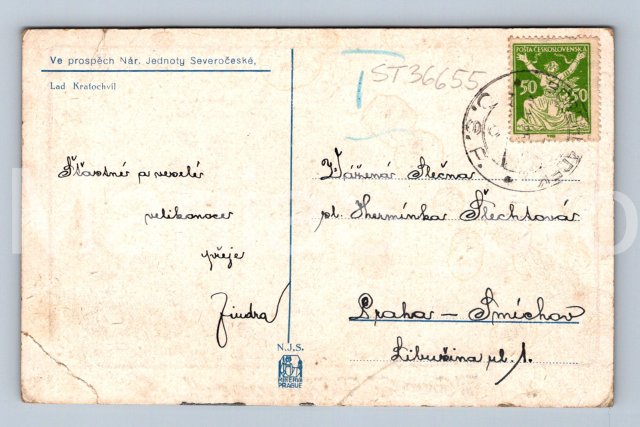 Ve prospěch Nár. Jednoty Severočeské,
Lad Kratochvíl
ST36655
POŠTA ČESKOSLOVENSKÁ
50 50
Šťastné a veselé
velikonoce
přeje
Jindra
Vážená Slečna
sl. Hermínka Šlechtová
Praha – Smíchov
Libušina ul. 1.
N.J.S.
MINERVA
PRAGUE